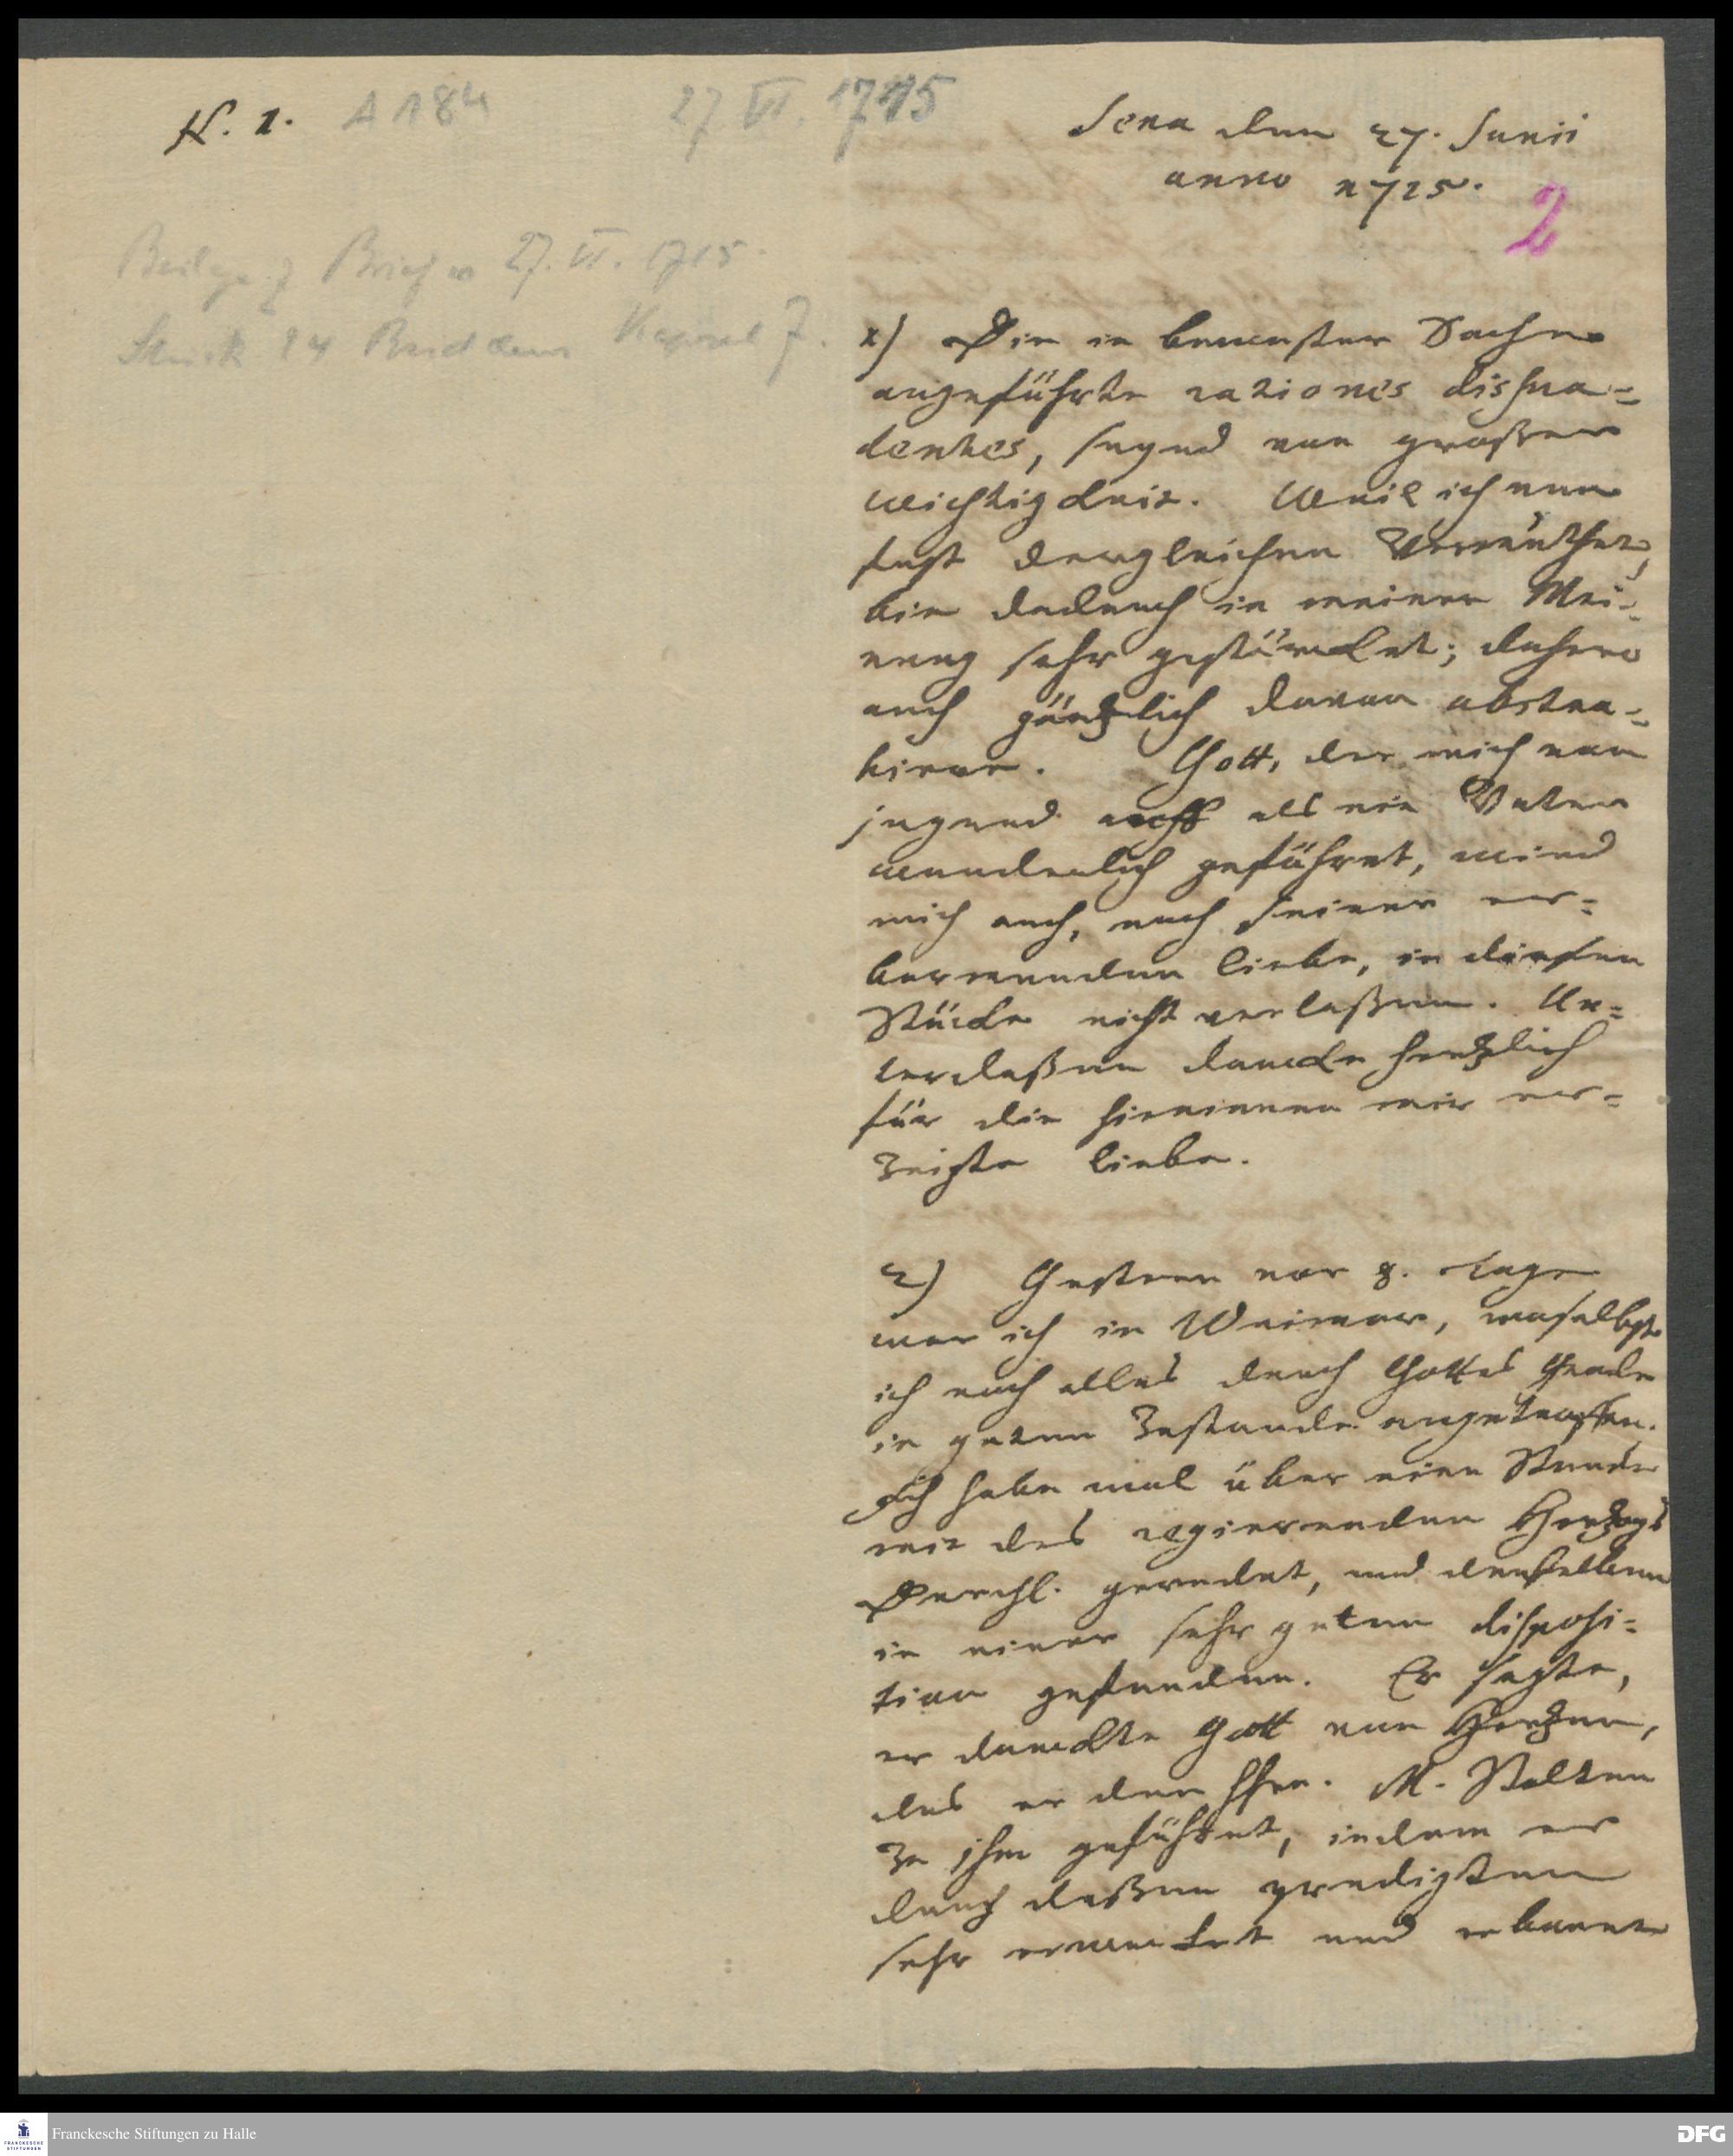 N. 1. A 184 27 VI. 1715
Jena den 27. Junii
anno 1715.
2
Beilage z Brief v 27. VI. 1715.
Stück 24 Buddeus Kapsel 7.
1) Die in bewuster Sache
angeführte rationes dissua=
dentes, seynd von großer
wichtigkeit. Weil ich nun
fast dergleichen vermuthet,
bin dadurch in meiner Mei=
nung sehr gestärcket; dahero
auch gäntzlich davon abstra=
hire. Gott, der mich von
jugend auff als ein Vater
wunderlich geführet, wird
mich auch, nach seiner er=
barmenden liebe, in diesem
Stücke nicht verlaßen. Un=
terdeßen dancke hertzlich
für die hierinnen mir er=
zeigte liebe.
2) Gestern vor 8. tage
war ich in Weimar, woselbst
ich noch alles durch Gottes Gnade
in gutem Zustande angetroffen.
Ich habe wol über eine Stunde
mit des regierenden Hertzogs
Durchl. geredet, und denselben
in einer sehr guten disposi=
tion gefunden. Er sagte,
er danckte Gott von Hertzen,
das er den Hhrn. M. Stolten
zu ihm geführet, indem er
durch deßen predigten
sehr erwecket und erbauet
Franckesche Stiftungen zu Halle
FRANCKESCHE
STIFTUNGEN
DFG